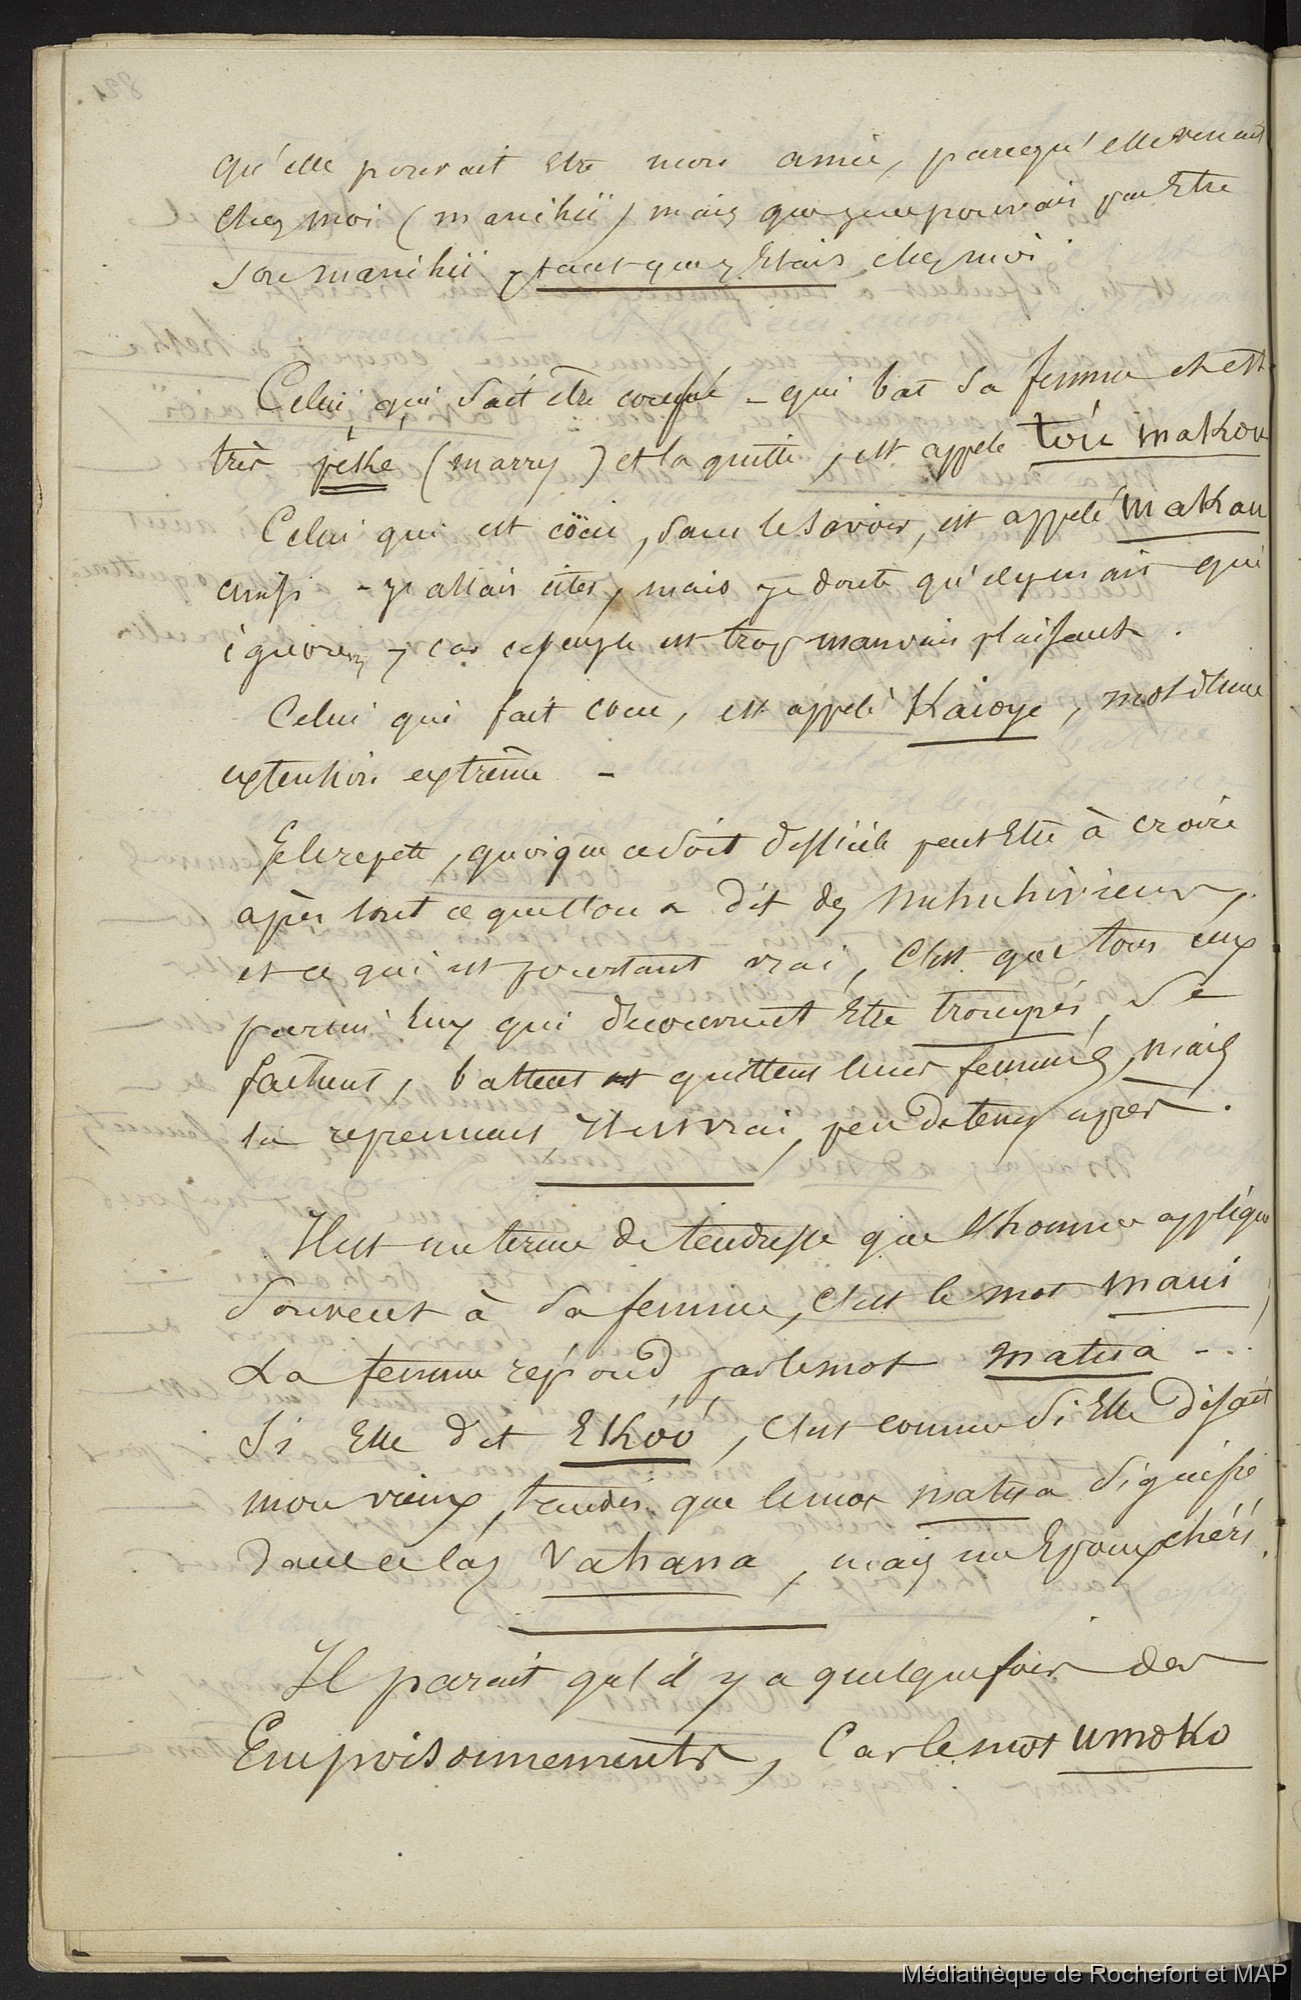 qu'elle pouvait etre mon amie, parcequ'elle venait
chez moi (manihii) mais que je ne pouvais pas Etre
son manihii, tant que j'Etais chez moi.
Celui qui sait être - qui bat sa femme et est
très péke (marry) et la quitte, est appelé toü makou
Celui qui est cocu, sans le savoir, est appelé makau
mais je doute qu'il y en ait qui
ignorent, car ce peuple est trop mauvais plaisant.
Celui qui fait cocu, est appelé Kaioye, mot d'une
extention extrême -
Je le repette, quoique ce soit difficile peut Etre à croire
après tout ce que l'on a dit des nuhuhiviens,
et ce qui est pourtant vrai, c'est que tous ceux
parmi Eux qui decouvrent Etre trompés, se
fachent, battent et quittent leurs femmes, mais
la reprennent, il est vrai, peu de temps après.
Il est un terme de tendresse que l'homme applique
souvent à sa femme, c'est le mot maui,
La femme répond par le mot matua - ..
Si Elle dit Ekóó, c'est comme si Elle disait
mon vieux, tandis que le mot matua signifie
dans ce cas vahana, mais un Epoux chéri.
Il parait qu'il y a quelquefois des
Empoisonnements, Car le mot umoko
Médiathèque de Rochefort et MAP